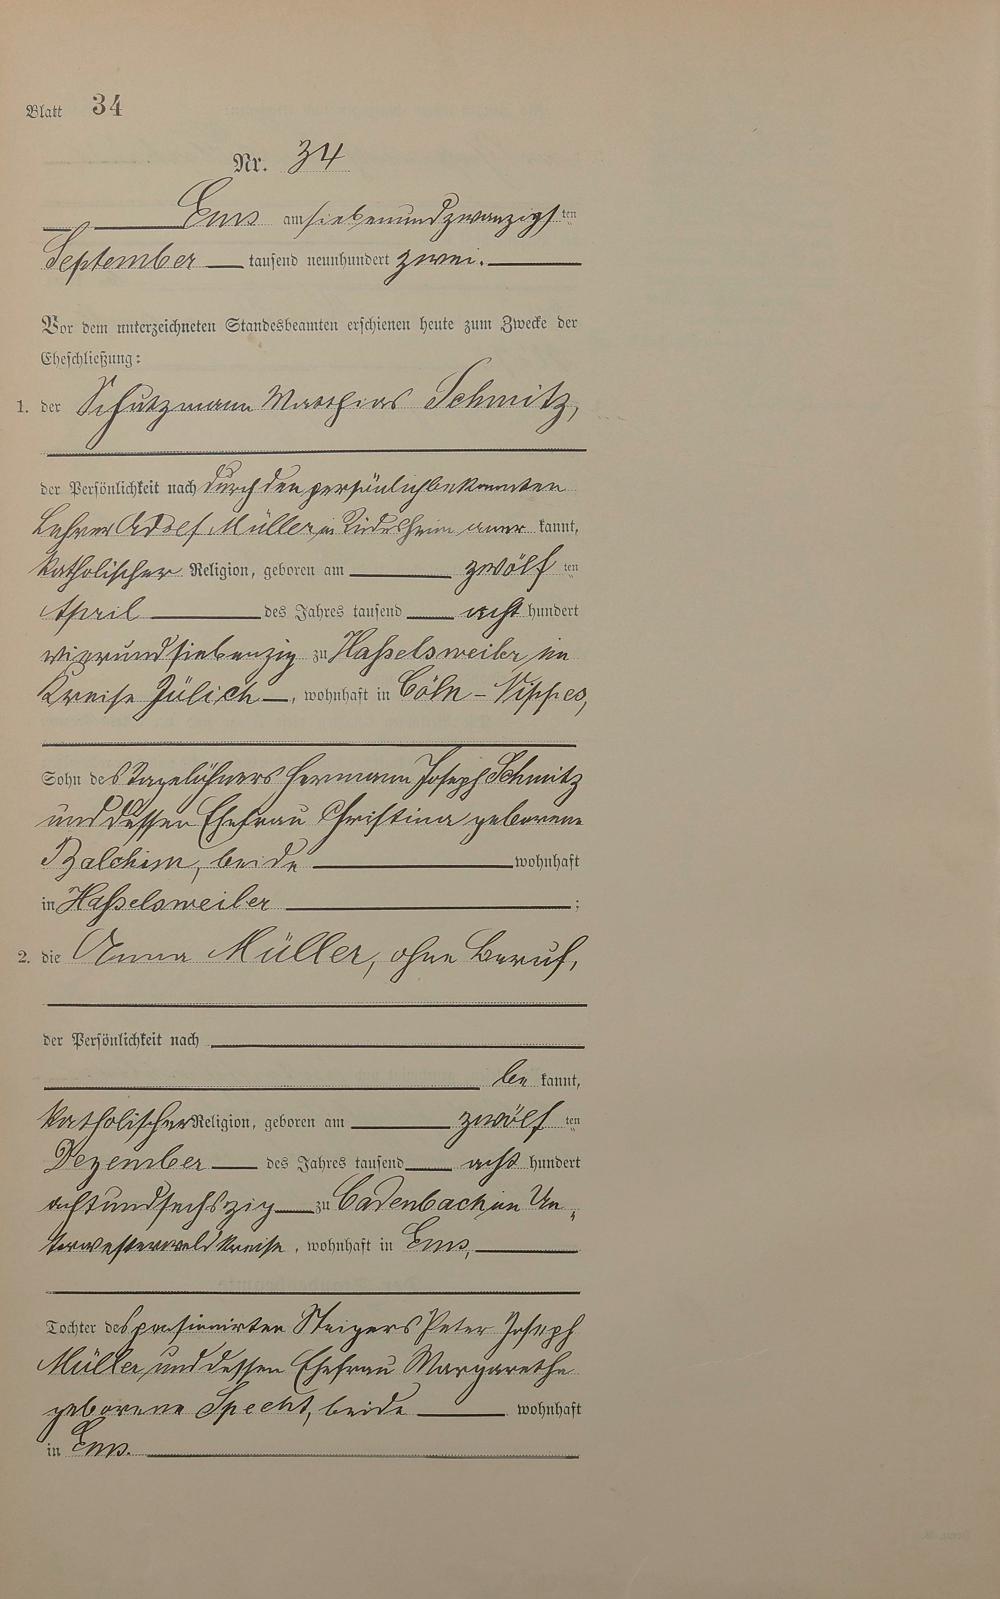 Blatt 34
Nr. 34
Ems am siebenundzwanzigsten
September tausend neunhundert zwei.
Vor dem unterzeichneten Standesbeamten erschienen heute zum Zwecke der
Eheschließung:
1. der Schutzmann Matthias Schmitz,
der Persönlichkeit nach durch den persönlich bekannten
Lehrer Adolf Müller in aner kannt,
katholischer Religion, geboren am zwölf ten
April des Jahres tausend acht hundert
vierundsiebenzig zu Hasselsweiler im
Kreise Jülich, wohnhaft in Cöln-Nippes,
Sohn des Tagelöhners Hermann Joseph Schmitz
und dessen Ehefrau Christina geborene
beide wohnhaft
in Hasselsweiler ;
2. die Anna Müller, ohne Beruf,
der Persönlichkeit nach
be kannt,
katholischer Religion, geboren am zwölf ten
Dezember des Jahres tausend acht hundert
achtundsechszig zu Cadenbach im Un-
terwesterwaldkreise, wohnhaft in Ems,
Tochter des pensionirten Steigers Peter Joseph
Müller und dessen Ehefrau Margarethe
geborene Specht, beide wohnhaft
in Ems.